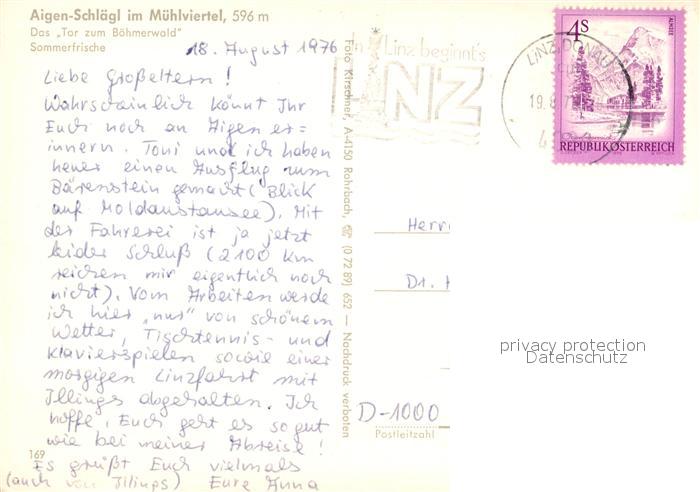 Aigen-Schlägl im Mühlviertel, 596 m
Das „Tor zum Böhmerwald"
Sommerfrische
18. August 1976
Liebe Großeltern!
Wahrscheinlich könnt Ihr
Euch noch an Aigen er=
innern. Toni und ich haben
heuer einen Ausflug zum
Bärenstein gemacht (Blick
auf Moldaustausee). Mit
der Fahrerei ist ja jetzt
leider Schluß (2100 km
reichen mir eigentlich noch
nicht). Vom Arbeiten werde
ich hier „nur" von schönem
Wetter, Tischtennis- und
Klavierspielen sowie einer
morgigen Linzfahrt mit
Illings abgehalten. Ich
hoffe, Euch geht es so gut
wie bei meiner Abreise!
Es grüßt Euch vielmals
(auch von Illings) Eure Anna
169
Foto Kirschner, A-4150 Rohrbach, ☎ (0 72 89) 652 — Nachdruck verboten
In Linz beginnt's
LINZ
LINZ, DONAU
19.8.7
4S
ALMSEE
REPUBLIK ÖSTERREICH
Herr
Dr. H
privacy protection
Datenschutz
D-1000
Postleitzahl